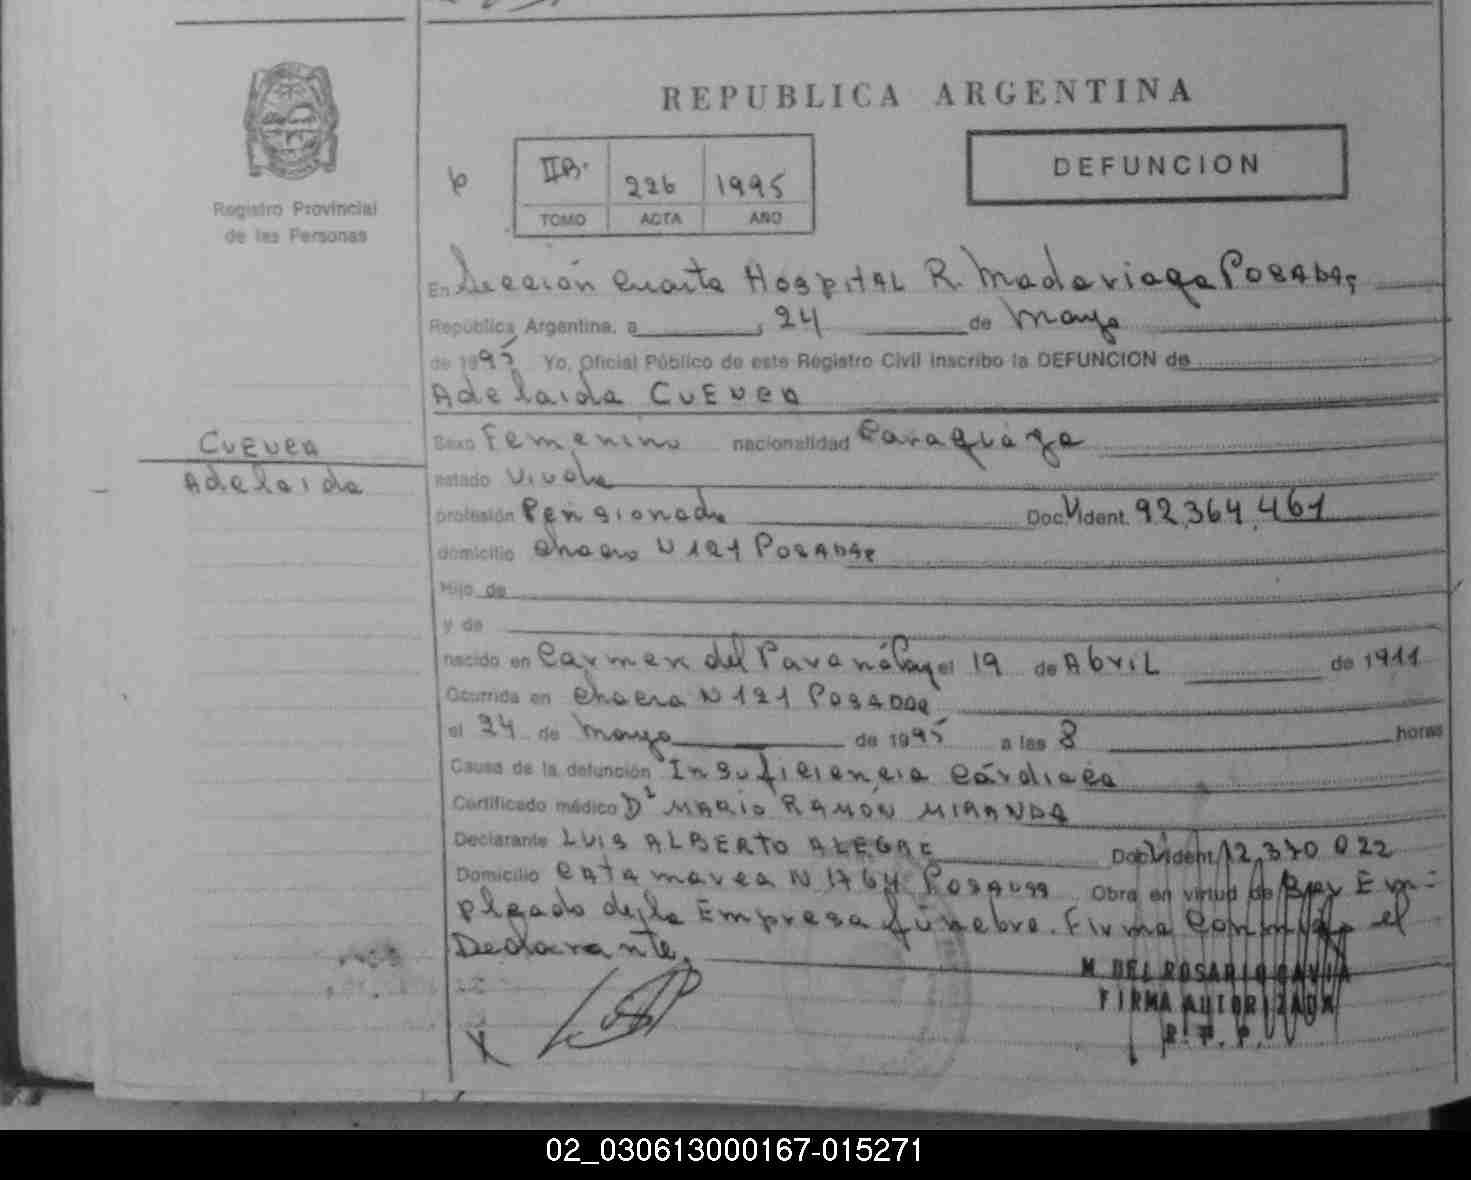 REPUBLICA ARGENTINA
Registro Provincial
de las Personas
IIB. 226 1995
TOMO ACTA AÑO
DEFUNCION
En Sección Cuarta Hospital R. Madariaga Posadas
República Argentina, a 24 de Mayo
de 1995 Yo, Oficial Público de este Registro Civil inscribo la DEFUNCION de
Adelaida Cuevea
Cuevea
Adelaida
Sexo Femenino nacionalidad Paraguaya
estado Viuda
profesión Pensionada Doc. Ident. 92.364.461
domicilio Chacra N 121 Posadas
Hijo de
y de
nacido en Carmen del Paraná Pay el 19 de Abril de 1911
Ocurrida en Chacra N 121 Posadas
el 24 de Mayo de 1995 a las 8 horas
Causa de la defunción Insuficiencia Cárdiaca
Certificado médico Dr MARIO RAMÓN MIRANDA
Declarante LUIS ALBERTO ALEGRE Doc. Ident. 12.370 022
Domicilio Catamarca N 1764 Posadas Obra en virtud de Ser Em-
pleado de la Empresa fúnebre. Firma Conmigo el
Declarante.
M. DEL ROSARIO GAVIA
FIRMA AUTORIZADA
R. P. P.
02_030613000167-015271